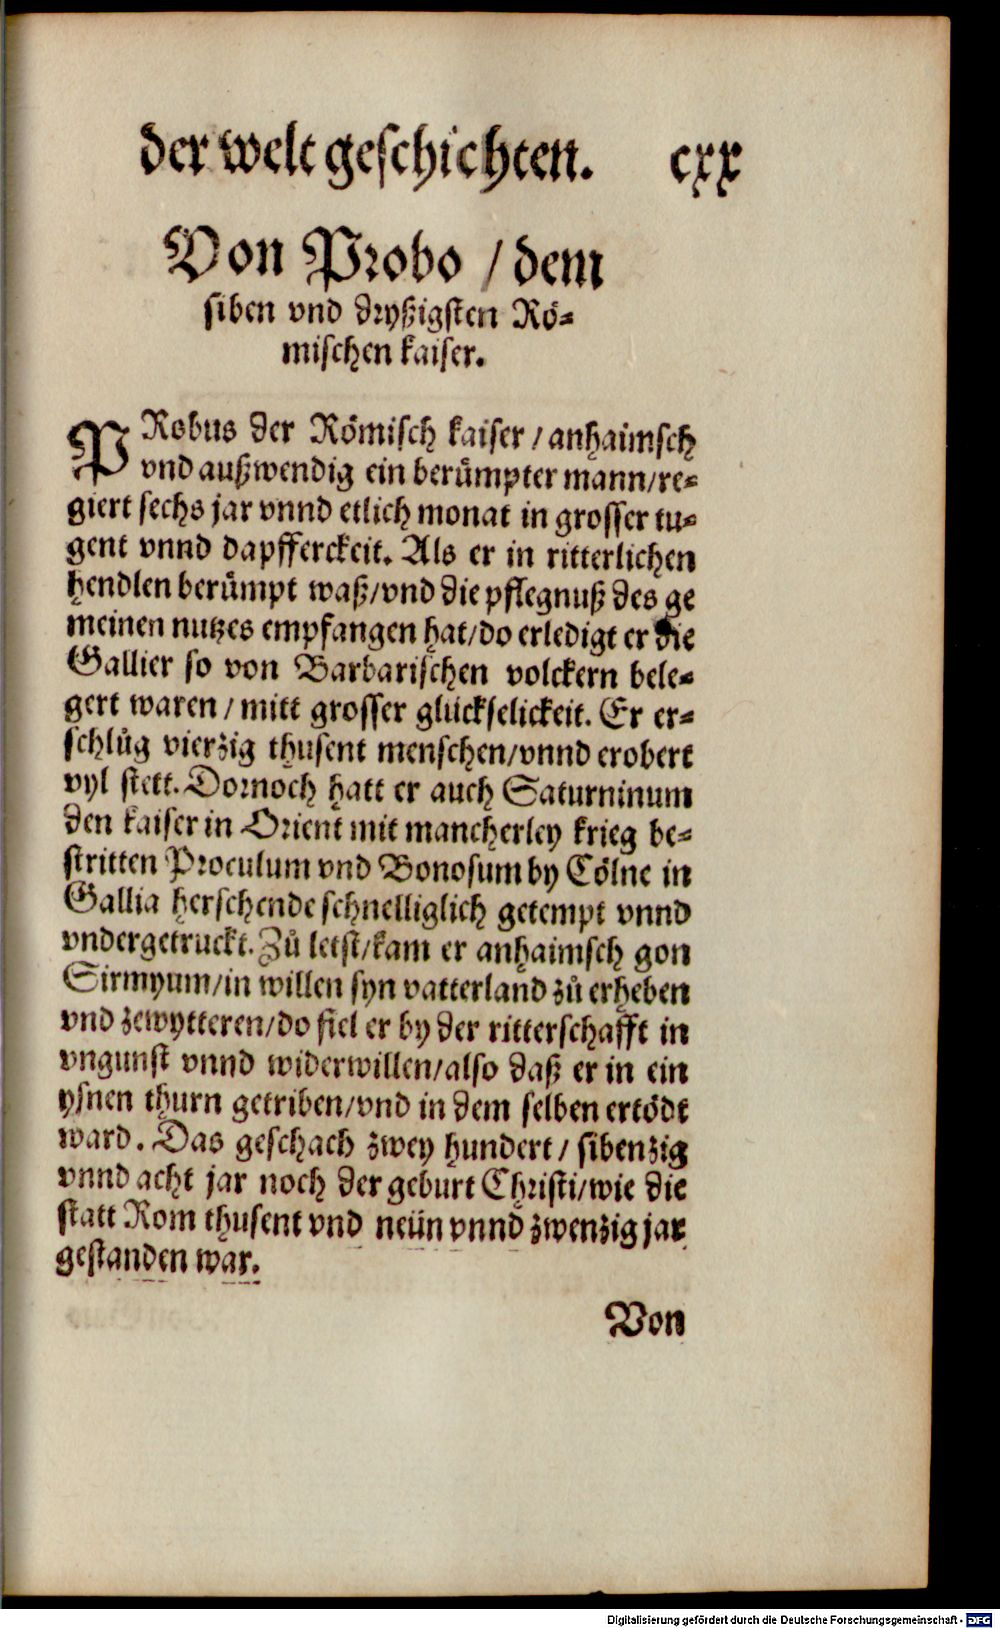 der welt geschichten. cxx
Von Probo / dem
siben vnd dryßigsten Rö-
mischen kaiser.
PRobus der Römisch kaiser / anhaimsch
vnd außwendig ein berůmpter mann/re-
giert sechs jar vnnd etlich monat in grosser tu-
gent vnnd dapfferckeit. Als er in ritterlichen
hendlen berůmpt waß/vnd die pflegnuß des ge
meinen nutzes empfangen hat/do erledigt er die
Gallier so von Barbarischen volckern bele-
gert waren / mitt grosser glückselickeit. Er er-
schlůg vierzig thusent menschen/vnnd erobert
vyl stett. Dornoch hatt er auch Saturninum
den kaiser in Orient mit mancherley krieg be-
stritten Proculum vnd Bonosum by Cölne in
Gallia herschende schnelliglich getempt vnnd
vndergetruckt. Zů letst/kam er anhaimsch gon
Sirmyum/in willen syn vatterland zů erheben
vnd zewytteren/do fiel er by der ritterschafft in
vngunst vnnd widerwillen/also daß er in ein
ysnen thurn getriben/vnd in dem selben ertödt
ward. Das geschach zwey hundert / sibenzig
vnnd acht jar noch der geburt Christi/wie die
statt Rom thusent vnd neün vnnd zwenzig jar
gestanden war.
Von
Digitalisierung gefördert durch die Deutsche Forschungsgemeinschaft - DFG